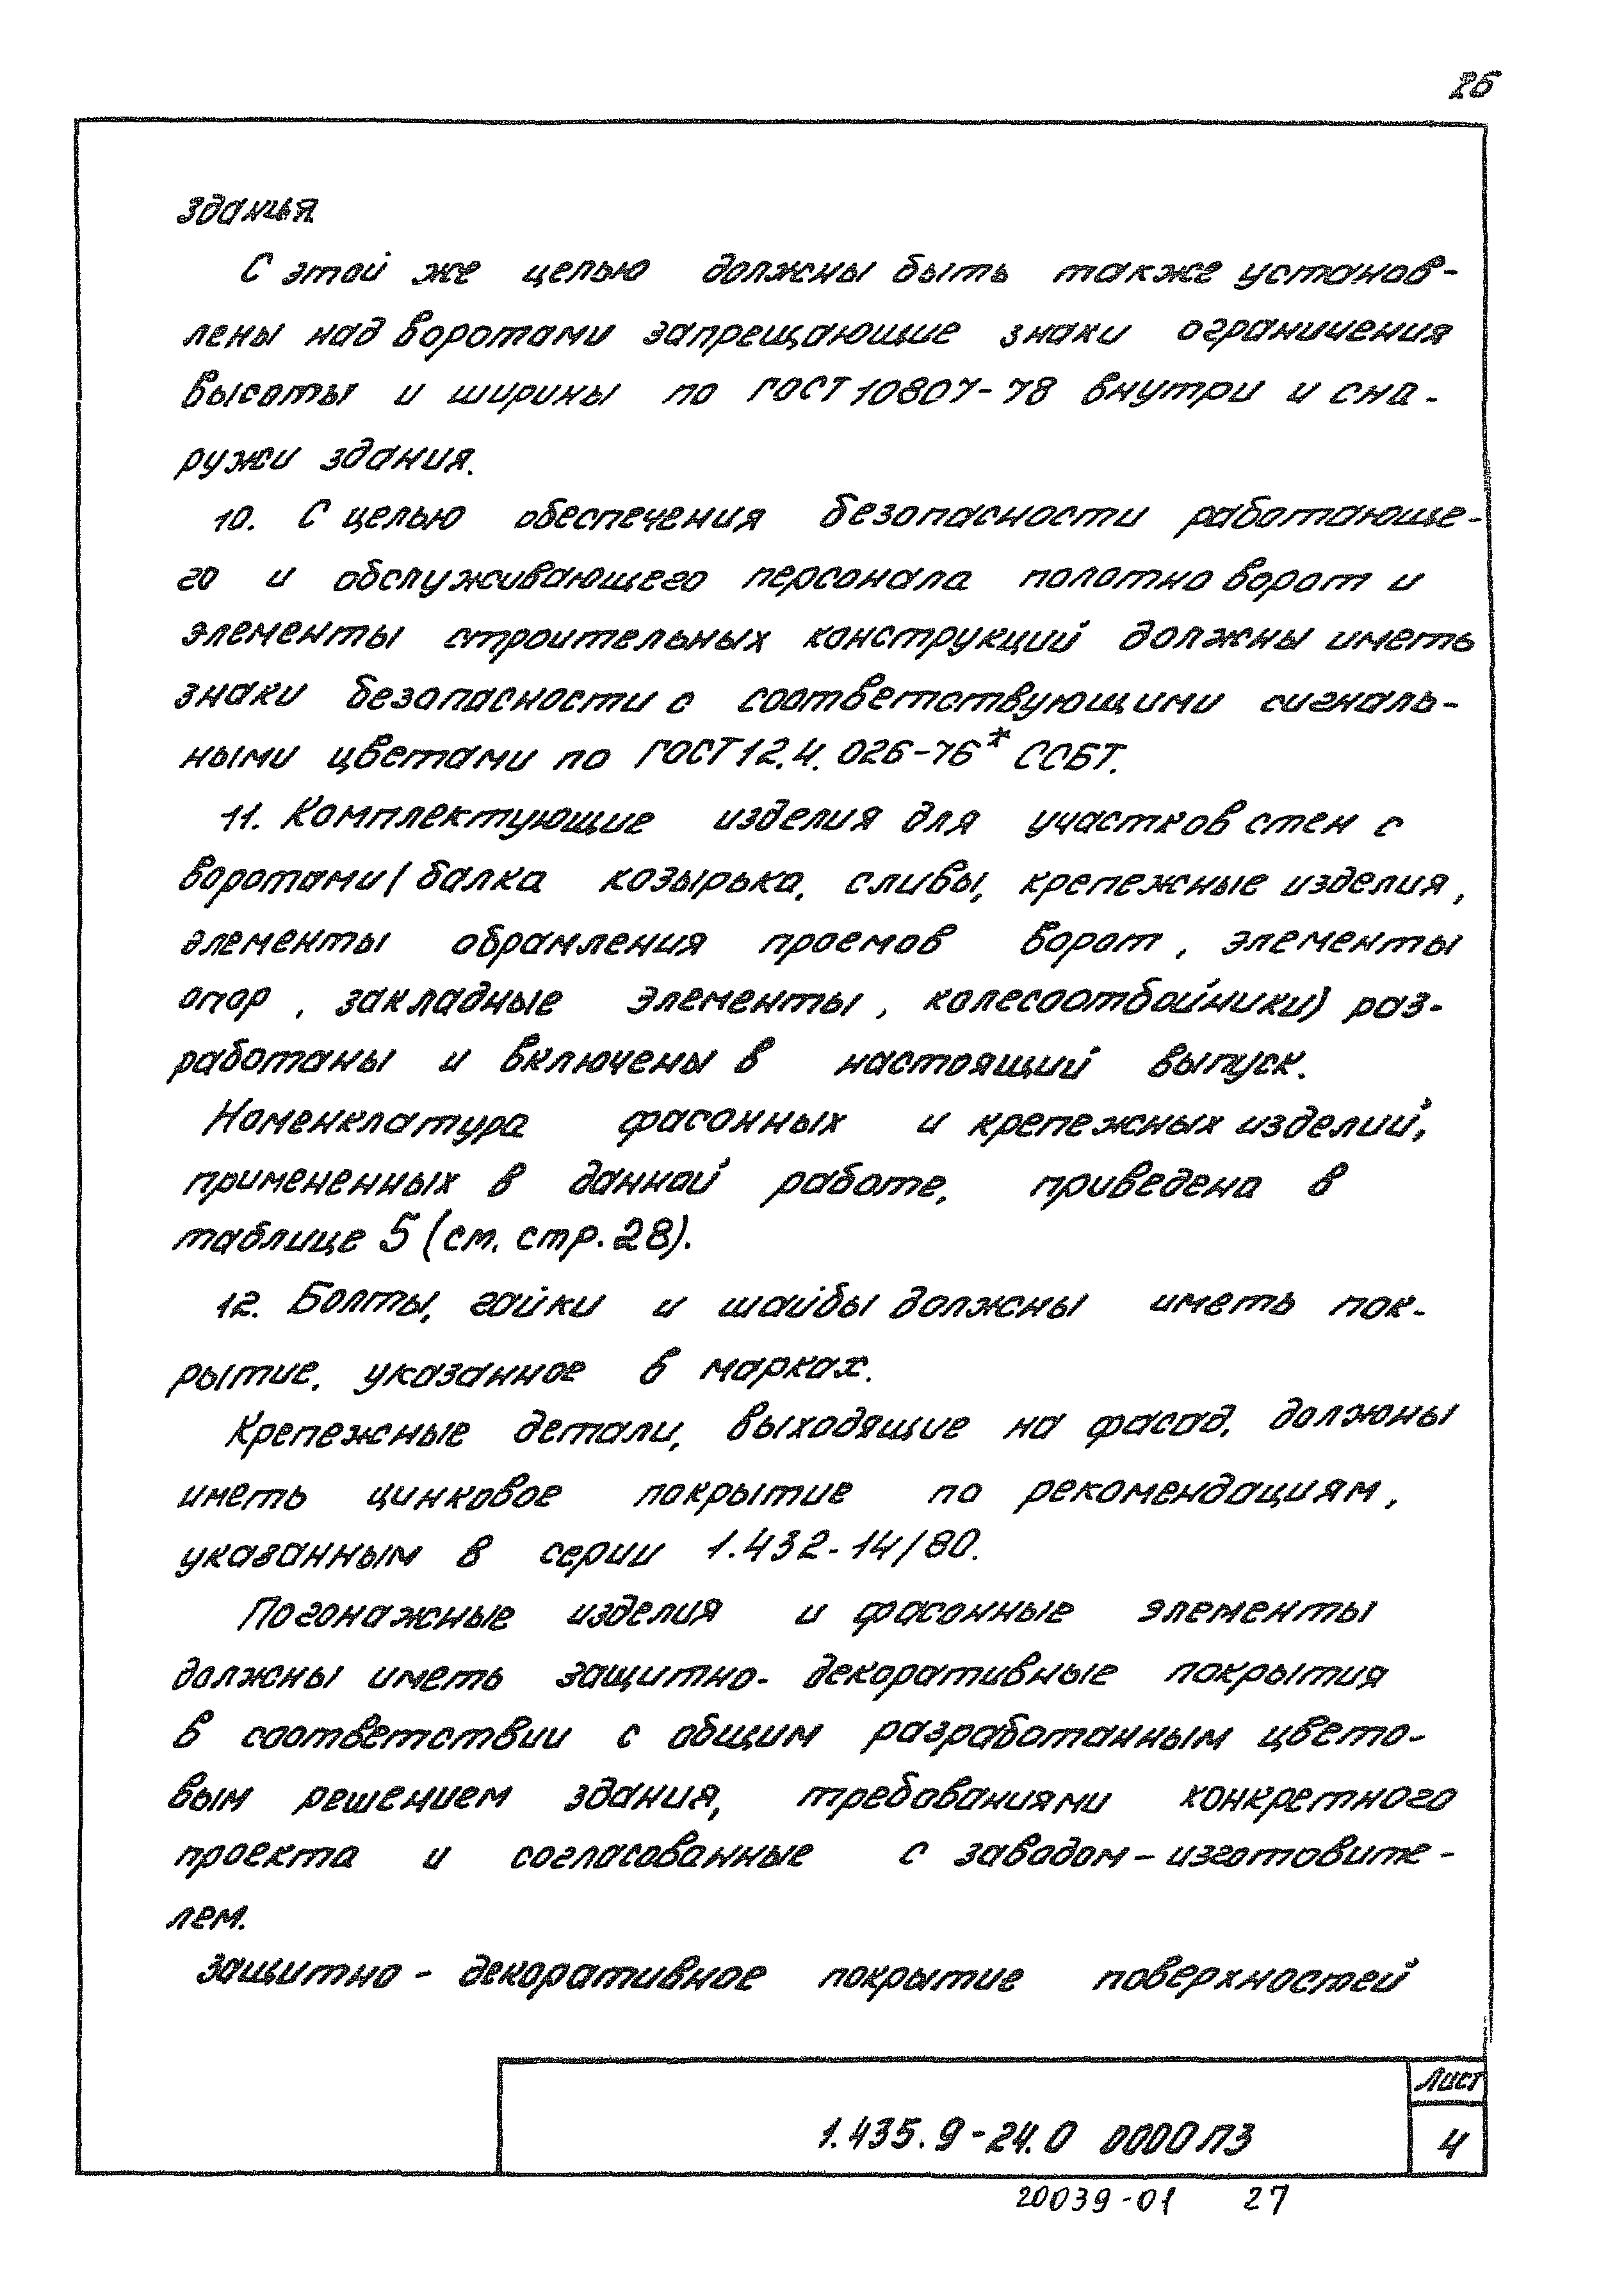 26
здания.
С этой же целью должны быть также установ-
лены над воротами запрещающие знаки ограничения
высоты и ширины по ГОСТ 10807-78 внутри и сна-
ружи здания.
10. С целью обеспечения безопасности работающе-
го и обслуживающего персонала полотно ворот и
элементы строительных конструкций должны иметь
знаки безопасности с соответствующими сигналь-
ными цветами по ГОСТ 12.4.026-76* ССБТ.
11. Комплектующие изделия для участков стен с
воротами (балка козырька, сливы, крепежные изделия,
элементы обрамления проемов ворот, элементы
опор, закладные элементы, колесоотбойники) раз-
работаны и включены в настоящий выпуск.
Номенклатура фасонных и крепежных изделий,
примененных в данной работе, приведена в
таблице 5 (см. стр. 28).
12. Болты, гайки и шайбы должны иметь пок-
рытие, указанное в марках.
Крепежные детали, выходящие на фасад, должны
иметь цинковое покрытие по рекомендациям,
указанным в серии 1.432-14/80.
Погонажные изделия и фасонные элементы
должны иметь защитно-декоративные покрытия
в соответствии с общим разработанным цвето-
вым решением здания, требованиями конкретного
проекта и согласованные с заводом-изготовите-
лем.
Защитно-декоративное покрытие поверхностей
Лист
1.435.9-24.0 0000ПЗ
4
20039-01 27